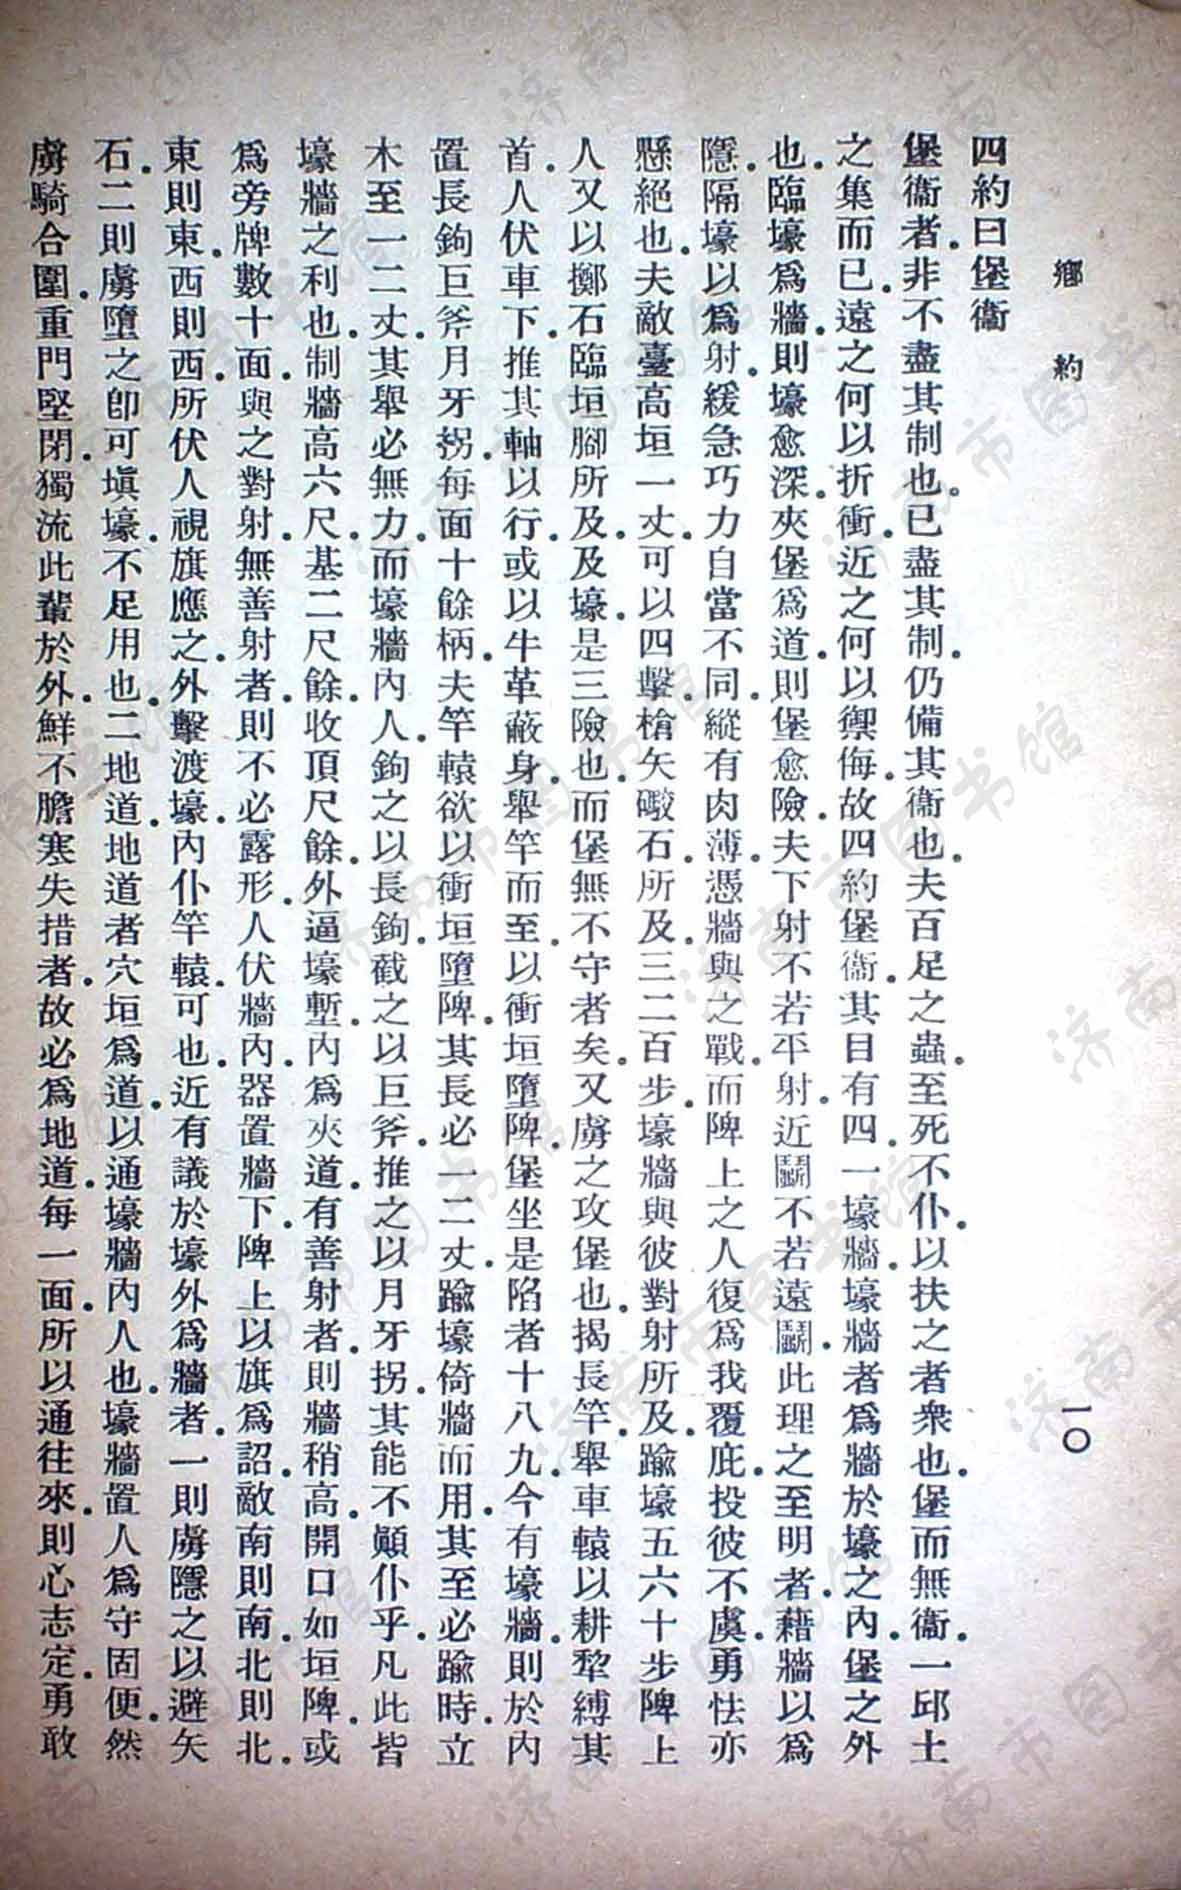 鄉約
一〇
四約曰堡衞
堡衞者．非不盡其制也。已盡其制．仍備其衞也．夫百足之蟲．至死不仆．以扶之者衆也．堡而無衞．一邱土
之集而已．遠之何以折衝．近之何以禦侮．故四約堡衞．其目有四．一壕牆．壕牆者爲牆於壕之內．堡之外
也．臨壕爲牆．則壕愈深．夾堡爲道．則堡愈險．夫下射不若平射．近鬭不若遠鬭．此理之至明者．藉牆以爲
隱．隔壕以爲射．緩急巧力自當不同．縱有肉薄．憑牆與之戰．而陴上之人復爲我覆庇．投彼不虞．勇怯亦
懸絕也．夫敵臺高垣一丈．可以四擊．槍矢礮石．所及三二百步．壕牆與彼對射所及．踰壕五六十步．陴上
人又以擲石臨垣腳所及．及壕．是三險也．而堡無不守者矣．又虜之攻堡也．揭長竿．舉車轅以耕犂縛其
首．人伏車下．推其軸以行．或以牛革蔽身．舉竿而至．以衝垣墮陴．堡坐是陷者十八九．今有壕牆．則於內
置長鉤巨斧月牙拐．每面十餘柄．夫竿轅欲以衝垣墮陴．其長必一二丈．踰壕倚牆而用．其至必踰時．立
木至一二丈．其舉必無力．而壕牆內人．鉤之以長鉤．截之以巨斧．推之以月牙拐．其能不顚仆乎．凡此皆
壕牆之利也．制牆高六尺．基二尺餘．收頂尺餘．外逼壕塹．內爲夾道．有善射者．則牆稍高．開口如垣陴．或
爲旁牌數十面．與之對射．無善射者．則不必露形．人伏牆內．器置牆下．陴上以旗爲詔．敵南則南．北則北．
東則東．西則西．所伏人視旗應之．外擊渡壕．內仆竿轅．可也．近有議於壕外爲牆者．一則虜隱之以避矢
石．二則虜墮之卽可塡壕．不足用也．二地道．地道者穴垣爲道．以通壕牆內人也．壕牆置人爲守固便．然
虜騎合圍．重門堅閉．獨流此輩於外．鮮不膽寒失措者．故必爲地道．每一面．所以通往來．則心志定．勇敢